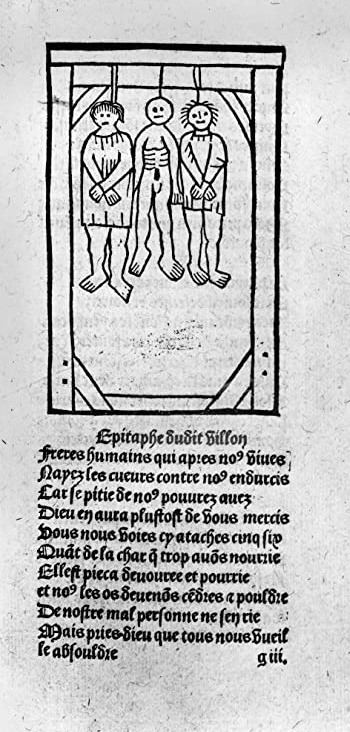 Epitaphe dudit Villon
Freres humains qui apres noꝰ viues
Nayez les cueurs contre noꝰ endurcis
Car se pitie de noꝰ pouurez auez
Dieu en aura plustost de vous mercis
Vous nous voies cy ataches cinq six
Quāt de la char q̄ trop auōs nourrie
Ellest pieca deuouree et pourrie
et noꝰ les os deuenōs cēdres ⁊ pouldre
De nostre mal personne ne sen rie
Mais pries dieu que tous nous vueil
le absouldre
g iii.